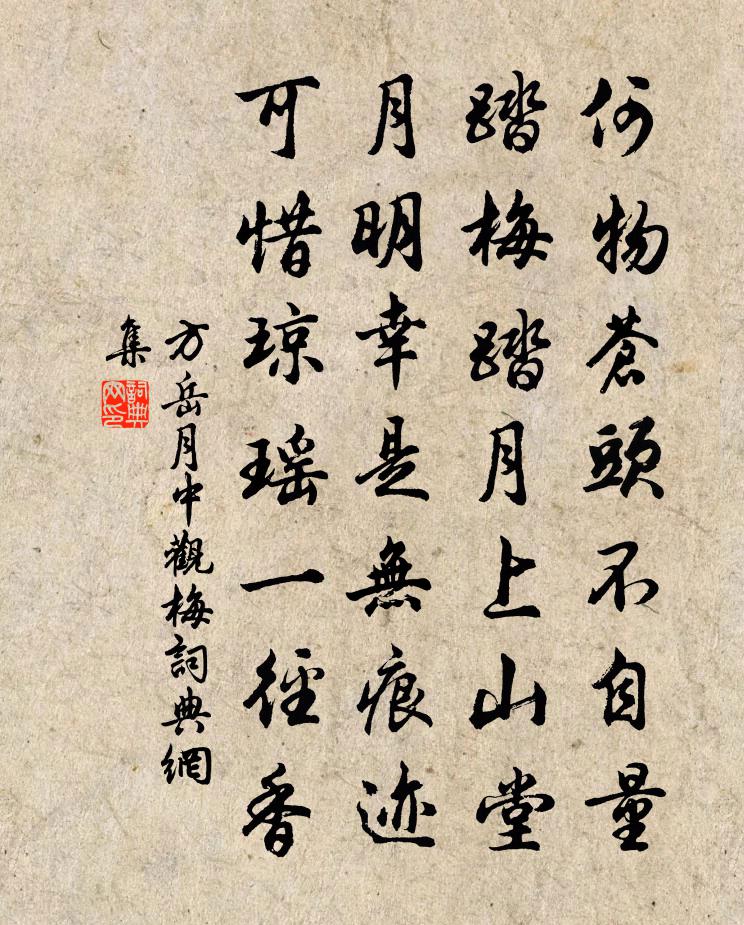 何物蒼頭不自量
踏梅踏月上山堂
月明幸是無痕迹
可惜琼瑶一徑香
方岳月中觀梅詞典網
集
詞典網印